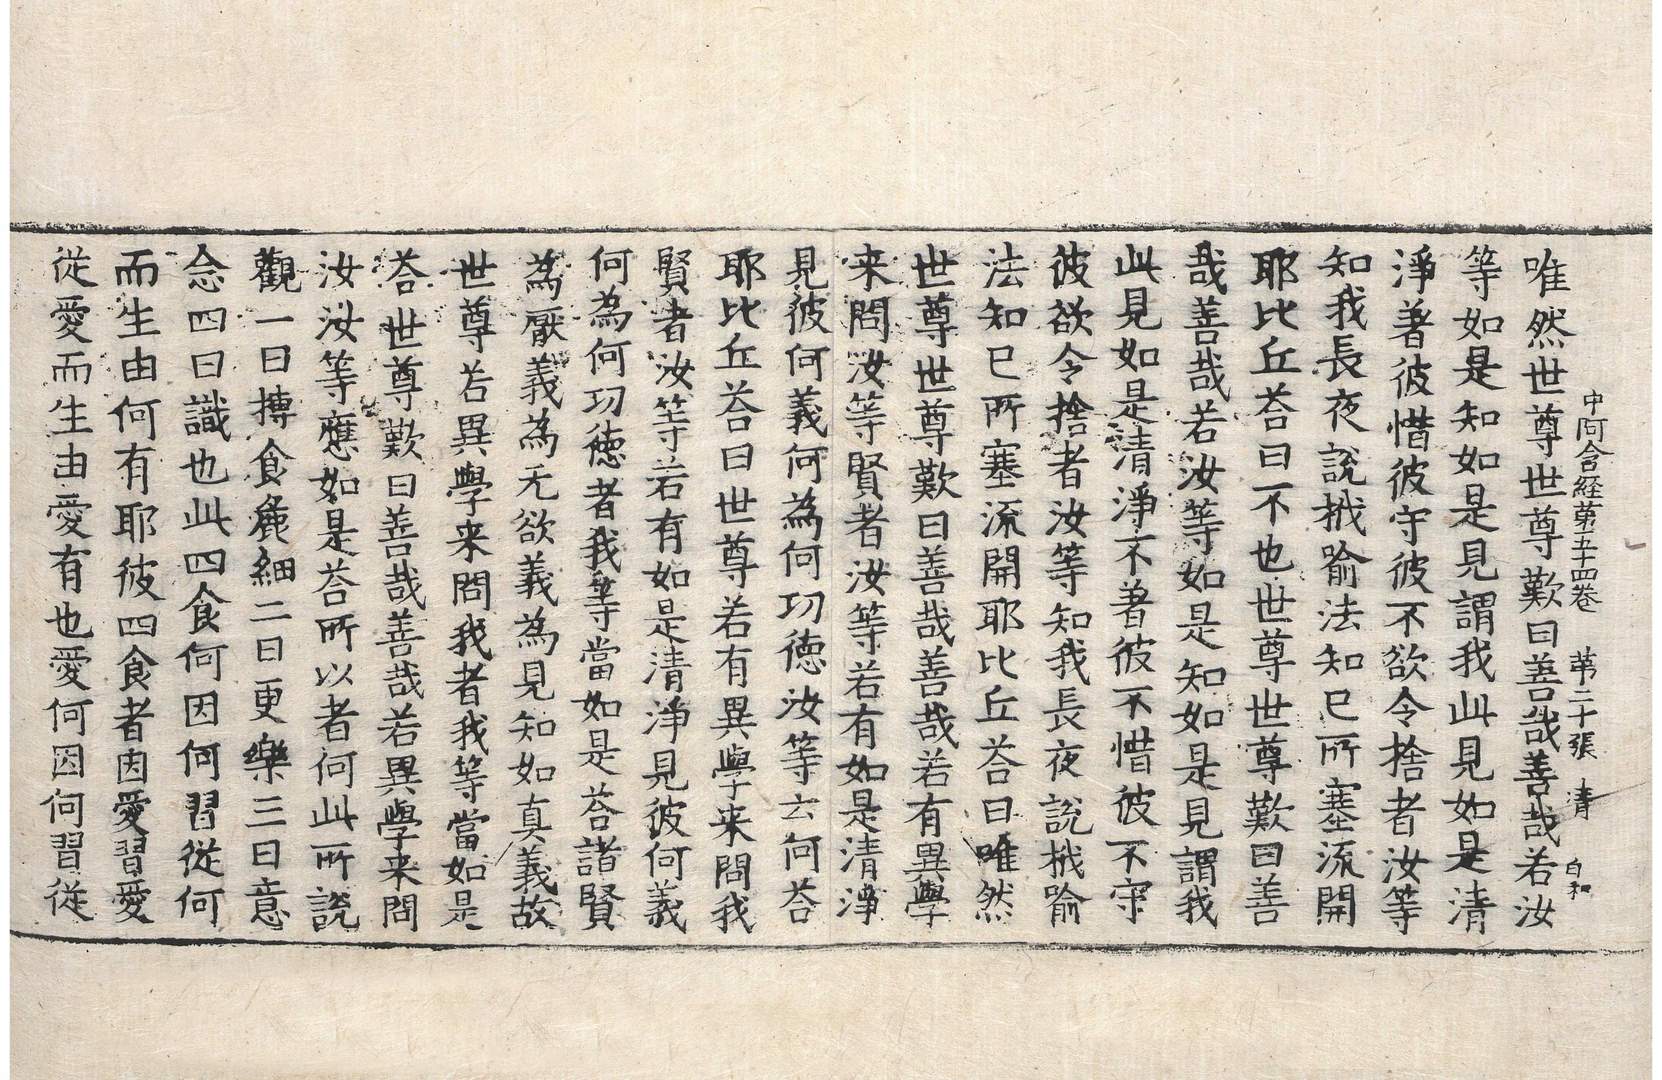 中阿含経第五十四卷 第二十張 清 白和
唯然世尊世尊歎曰善哉善哉若汝
等如是知如是見謂我此見如是清
淨著彼惜彼守彼不欲令捨者汝等
知我長夜說栰喻法知已所塞流開
耶比丘荅曰不也世尊世尊歎曰善
哉善哉若汝等如是知如是見謂我
此見如是清淨不著彼不惜彼不守
彼欲令捨者汝等知我長夜說栰喻
法知已所塞流開耶比丘荅曰唯然
世尊世尊歎曰善哉善哉若有異學
来問汝等賢者汝等若有如是清淨
見彼何義何為何功德汝等云何荅
耶比丘荅曰世尊若有異學来問我
賢者汝等若有如是清淨見彼何義
何為何功德者我等當如是荅諸賢
為猒義為无欲義為見知如真義故
世尊若異學来問我者我等當如是
荅世尊歎曰善哉善哉若異學来問
汝汝等應如是荅所以者何此所說
觀一曰摶食麁細二曰更樂三曰意
念四曰識也此四食何因何習從何
而生由何有耶彼四食者因愛習愛
從愛而生由愛有也愛何因何習從